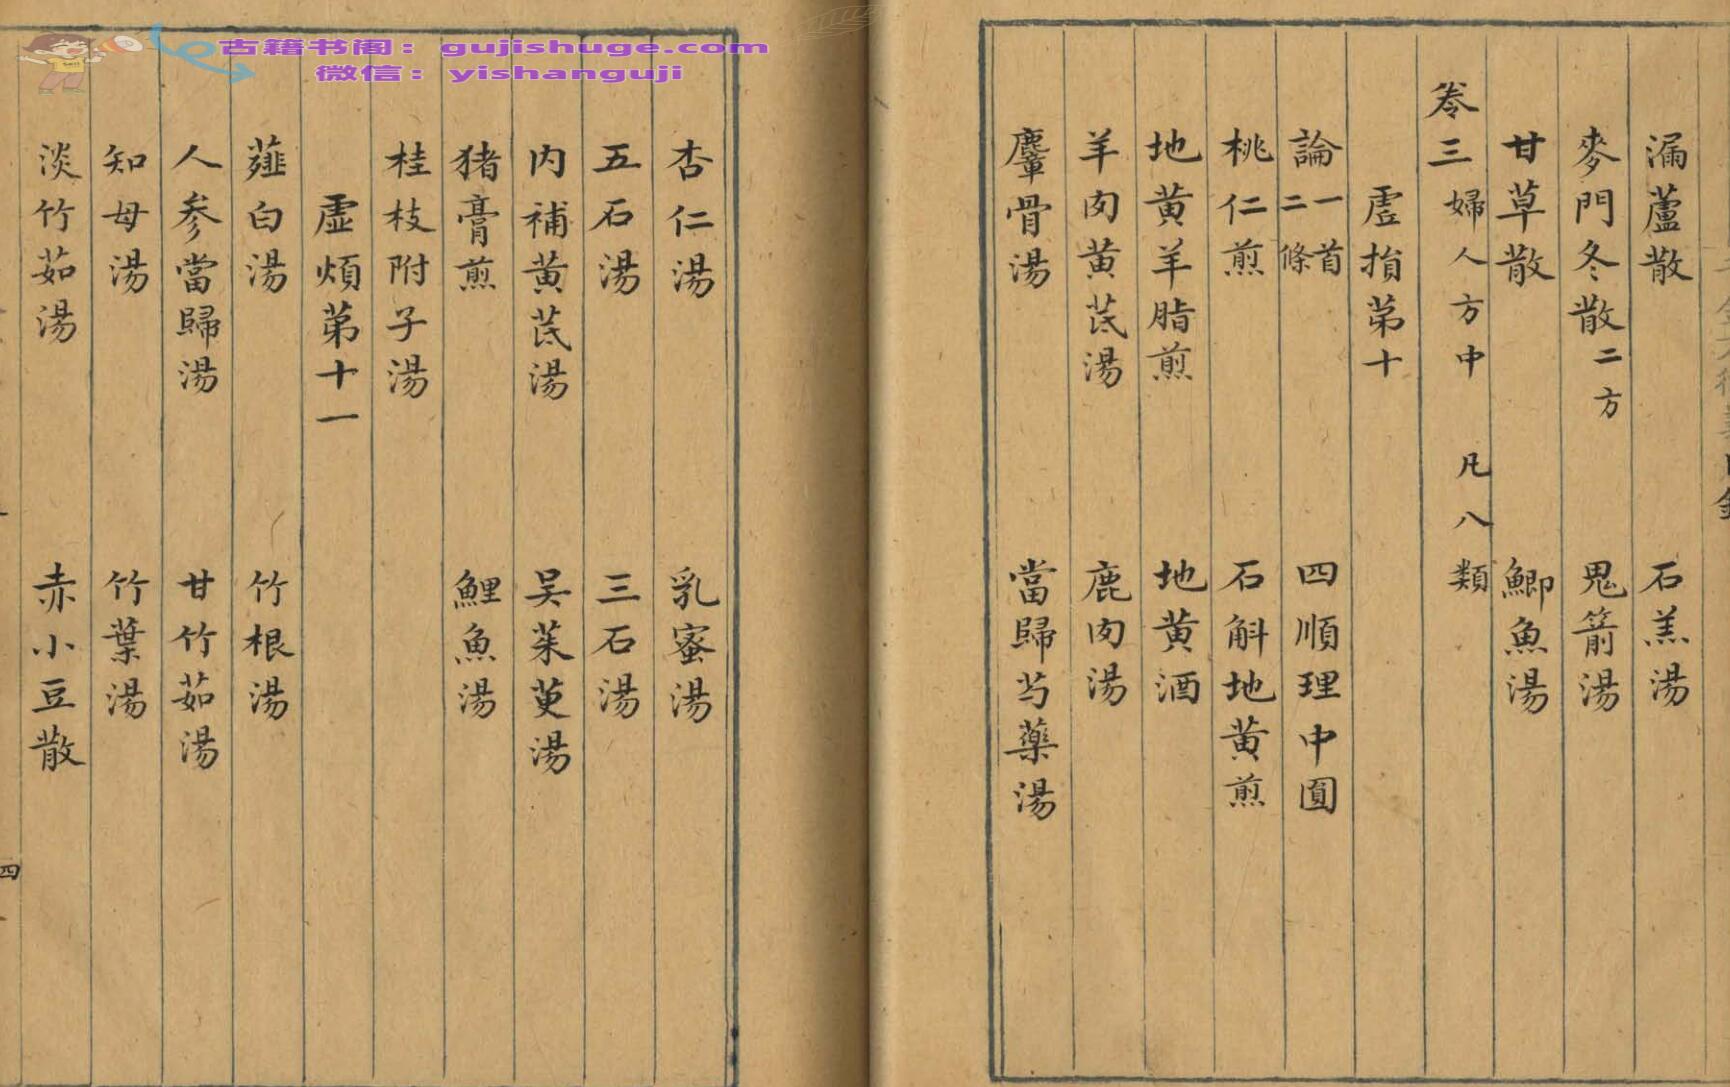 古籍书阁：gujishuge.com
微信：yishanguji
漏蘆散 石羔湯
麥門冬散二方 鬼箭湯
甘草散 鯽魚湯
卷三 婦人方中 凡八類
虛損第十
論一首二條 四順理中圓
桃仁煎 石斛地黄煎
地黄羊脂煎 地黄酒
羊肉黄芪湯 鹿肉湯
麞骨湯 當歸芍藥湯
杏仁湯 乳蜜湯
五石湯 三石湯
内補黄芪湯 吴茱萸湯
猪膏煎 鯉魚湯
桂枝附子湯
虛煩第十一
薤白湯 竹根湯
人參當歸湯 甘竹茹湯
知母湯 竹葉湯
淡竹茹湯 赤小豆散
四